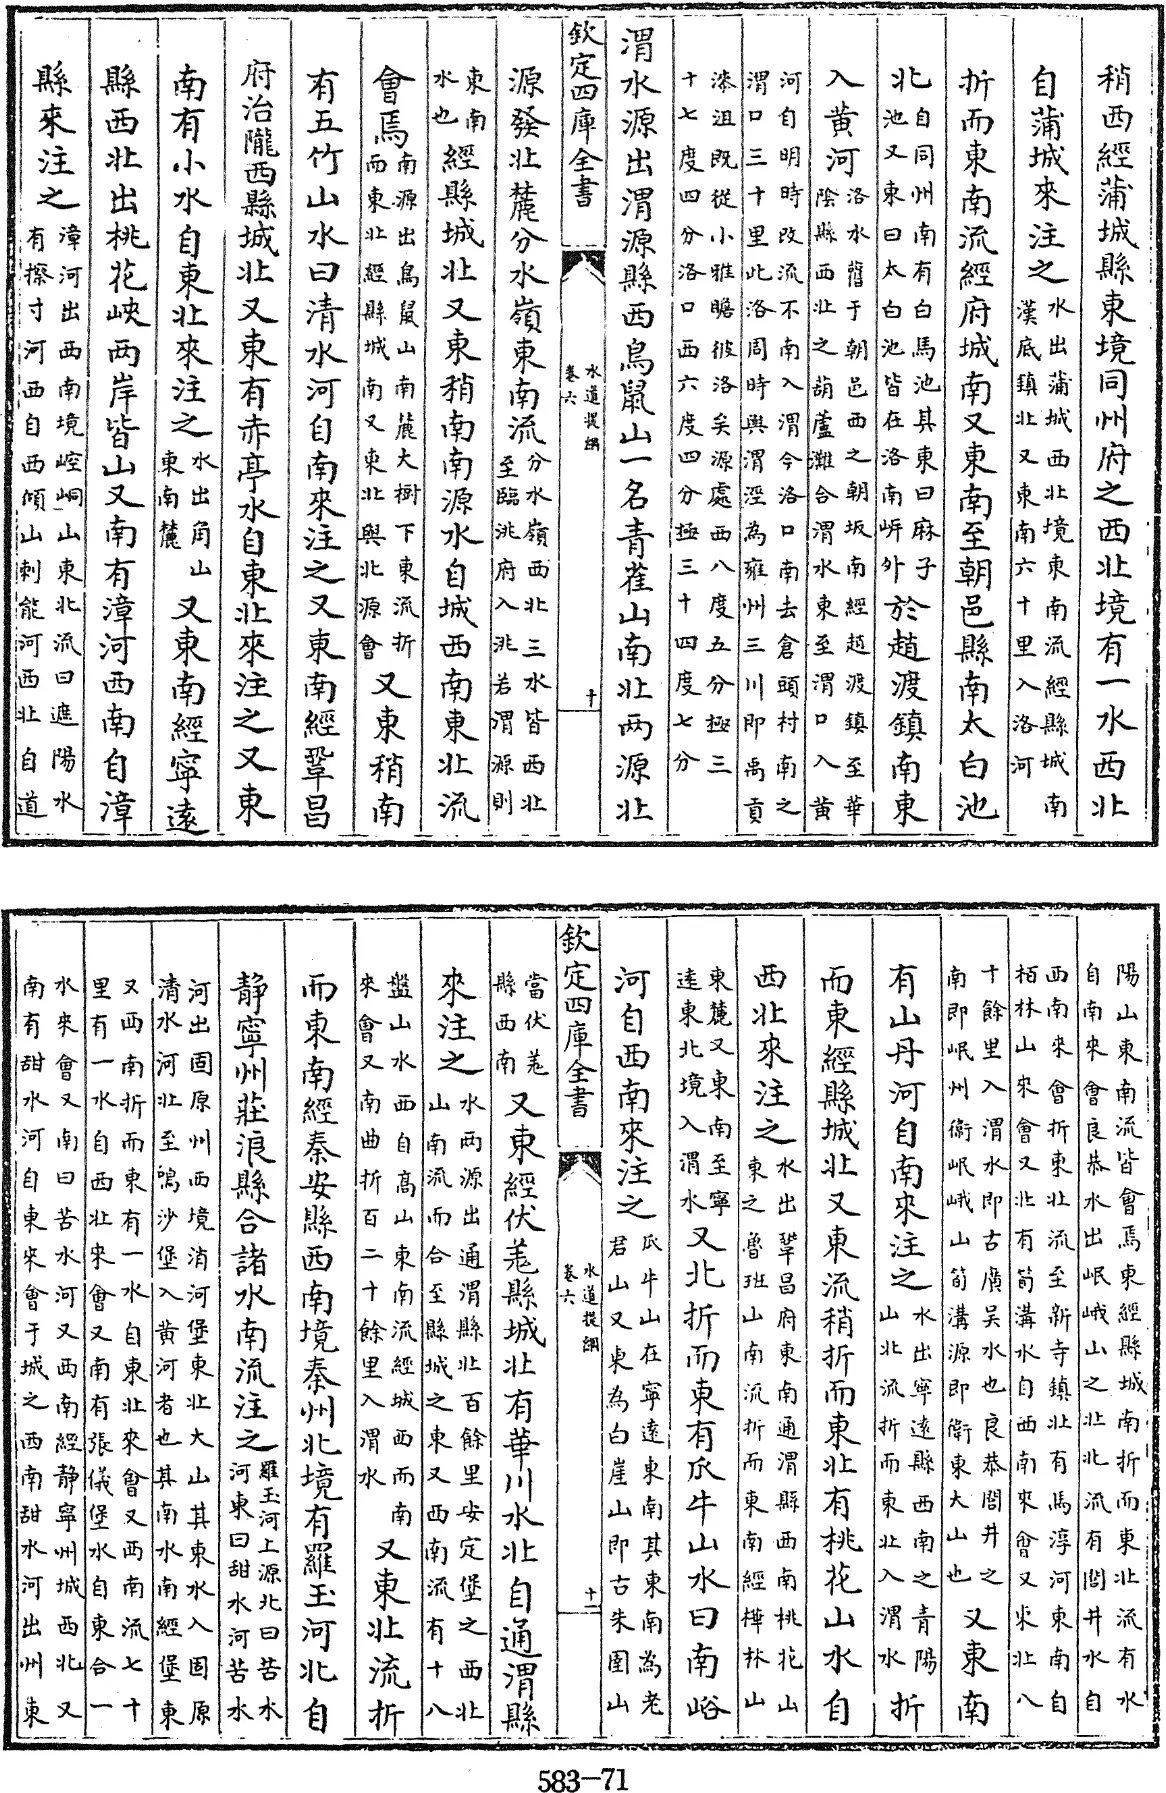 稍西經蒲城縣東境同州府之西北境有一水西北
自蒲城來注之水出蒲城西北境東南流經縣城南
漢底鎮北又東南六十里入洛河
折而東南流經府城南又東南至朝邑縣南太白池
北自同州南有白馬池其東曰麻子
池又東曰太白池皆在洛南岍外於趙渡鎮南東
入黄河洛水舊于朝邑西之朝坂南經趙渡鎮至華
陰縣西北之葫蘆灘合渭水東至渭口入黄
河自明時改流不南入渭今洛口南去倉頭村南之
渭口三十里此洛同時與渭涇為雍州三川即禹貢
漆沮既從小雅瞻彼洛矣源處西八度五分極三
十七度四分洛口西六度四分極三十四度七分
渭水源出渭源縣西鳥鼠山一名青雀山南北兩源北
欽定四庫全書
水道提綱
卷六
十
源發北麓分水嶺東南流分水嶺西北三水皆西北
至臨洮府入洮若渭源則
東南
水也經縣城北又東稍南南源水自城西南東北流
會焉南源出鳥鼠山南麓大樹下東流折
而東北經縣城南又東北與北源會又東稍南
有五竹山水曰清水河自南來注之又東南經鞏昌
府治隴西縣城北又東有赤亭水自東北來注之又東
南有小水自東北來注之水出角山
東南麓又東南經寧遠
縣西北出桃花峽兩岸皆山又南有漳河西南自漳
縣來注之漳河出西南境崆峒山東北流曰遮陽水
有擦寸河西自西傾山刺能河西北自道
陽山東南流皆會焉東經縣城南折而東北流有水
自南來會良恭水出岷峨山之北北流有閻井水自
西南來會折東北流至新寺鎮北有馬淳河東南自
栢林山來會又北有筍溝水自西南來會又東北八
十餘里入渭水即古廣吴水也良恭閻井之
南即岷州衛岷峨山筍溝源即衛東大山也又東南
有山丹河自南來注之水出寧遠縣西南之青陽
山北流折而東北入渭水折
而東經縣城北又東流稍折而東北有桃花山水自
西北來注之水出鞏昌府東南通渭縣西南桃花山
東之魯班山南流折而東南經樺林山
東麓又東南至寧
逺東北境入渭水又北折而東有瓜牛山水曰南峪
河自西南來注之瓜牛山在寧遠東南其東南為老
君山又東為白崖山即古朱圉山
欽定四庫全書
水道提綱
卷六
十一
當伏羌
縣西南又東經伏羌縣城北有華川水北自通渭縣
來注之水兩源出通渭縣北百餘里安定堡之西北
山南流而合至縣城之東又西南流有十八
盤山水西自髙山東南流經城西而南
來會又南曲折百二十餘里入渭水又東北流折
而東南經秦安縣西南境秦州北境有羅玉河北自
静寧州莊浪縣合諸水南流注之羅玉河上源北曰苦水
河東曰甜水河苦水
河出固原州西境消河堡東北大山其東水入固原
清水河北至鳴沙堡入黄河者也其南水南經堡東
又西南折而東有一水自東北來會又西南流七十
里有一水自西北來會又南有張儀堡水自東合一
水來會又南曰苦水河又西南經静寧州城西北又
南有甜水河自東來會于城之西南甜水河出州東
583-71